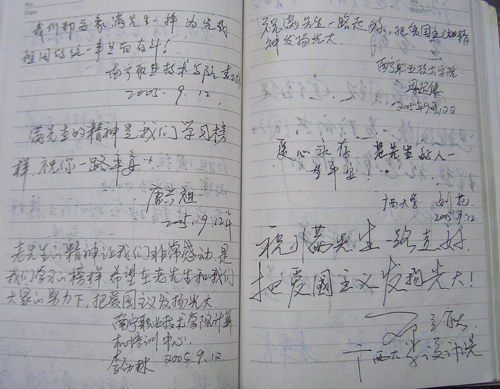 我们都要象满先生一样 为完成
祖国的统一事业而奋斗！
南宁职业技术学院
2005.9.12.
满先生的精神是我们学习榜
样 祝你一路平安
2005.9.12
老先生的精神让我们非常感动 是
我们学习的榜样.希望在老先生和我们
大家的努力下,把爱国主义发扬光大
南宁职业技术学院计算
机培训中心.
2005.9.12
祝满先生一路走好,把爱国主义的精
神发扬光大.
南宁职业技术学院
2005年9月12日
爱心永存 老先生好人一
生平安
广西大学
2005.9.12
祝满先生一路走好
把爱國主义发扬光大！
广西大学